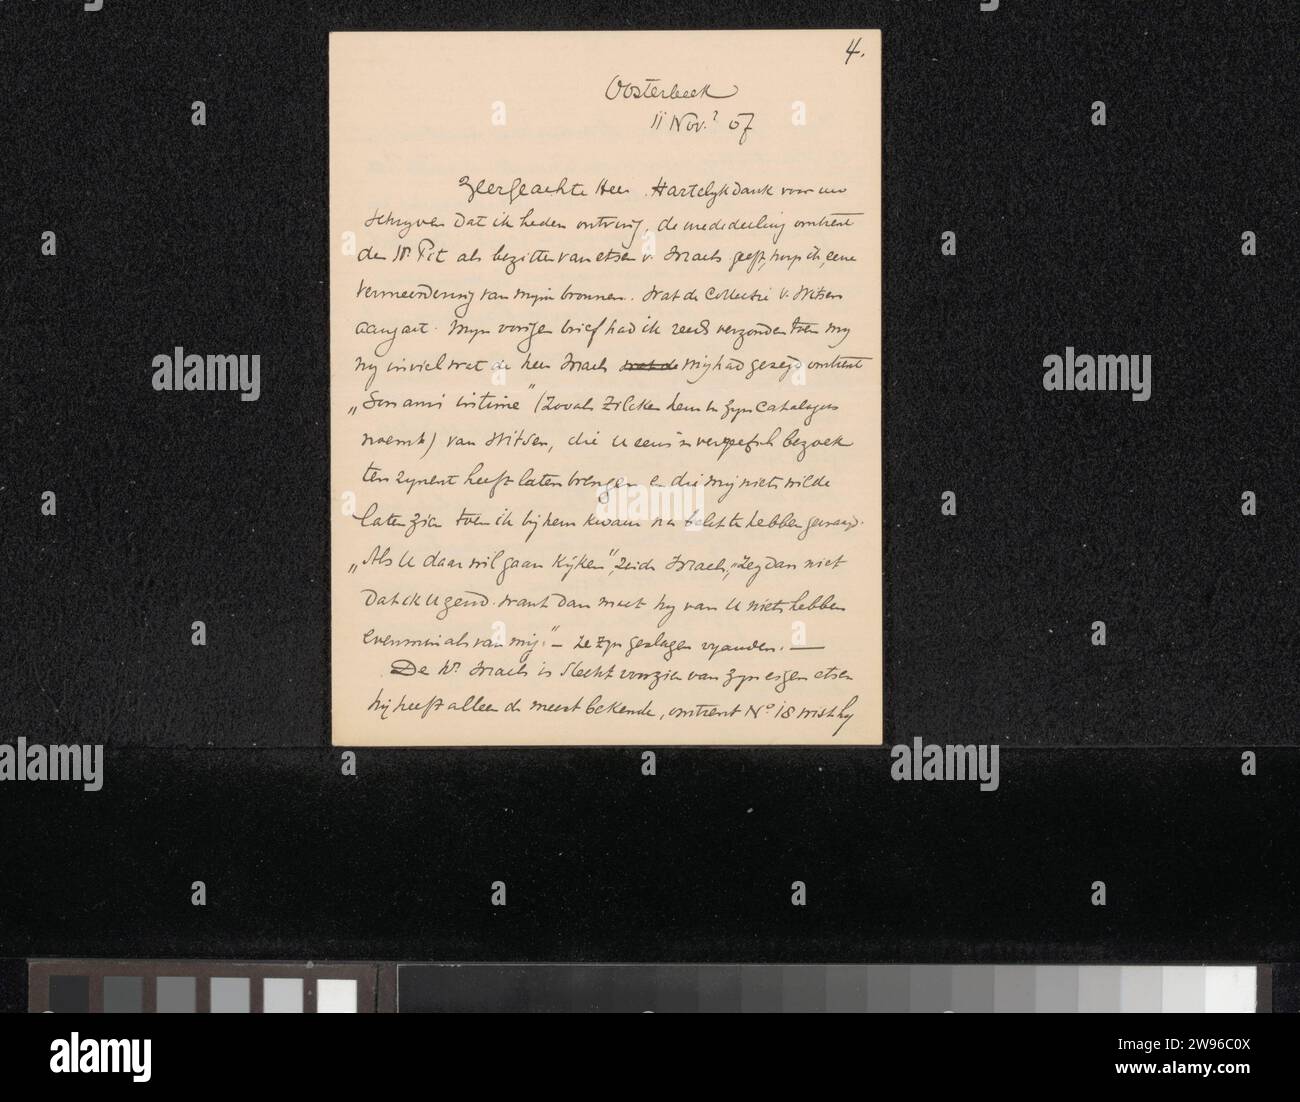 4.
Oosterbeek
11 Nov.? 07
Zeergeachte Heer. Hartelyk dank voor uw
schryven dat ik heden ontving, de mededeeling omtrent
den Hr. Pit als bezitter van etsen v. Israels geeft, hoop ik, eene
vermeerdering van myn bronnen. Wat de Collectie v. Witsen
aangaat. Myn vorigen brief had ik reeds verzonden toen my
inviel wat de heer Israels mij had gezegd omtrent
„Son ami intime" (zooals Zilcken hem in zyn Catalogus
noemt) van Witsen, die u eens 'n vergeefsch bezoek
ten zynent heeft laten brengen en die mij niets wilde
laten zien toen ik bij hem kwam na belet te hebben gevraagd.
„Als U daar wil gaan kijken", zeide Israels, „zeg dan niet
dat ik U zend. want dan moet hy van U niets hebben
evenmin als van mij." — ze zyn geslagen vyanden. —
De Hr. Israels is slecht voorzien van zyn eigen etsen
hij heeft alleen de meest bekende, omtrent No. 18 wist hy
alamy
Image ID: 2W96C0X
www.alamy.com